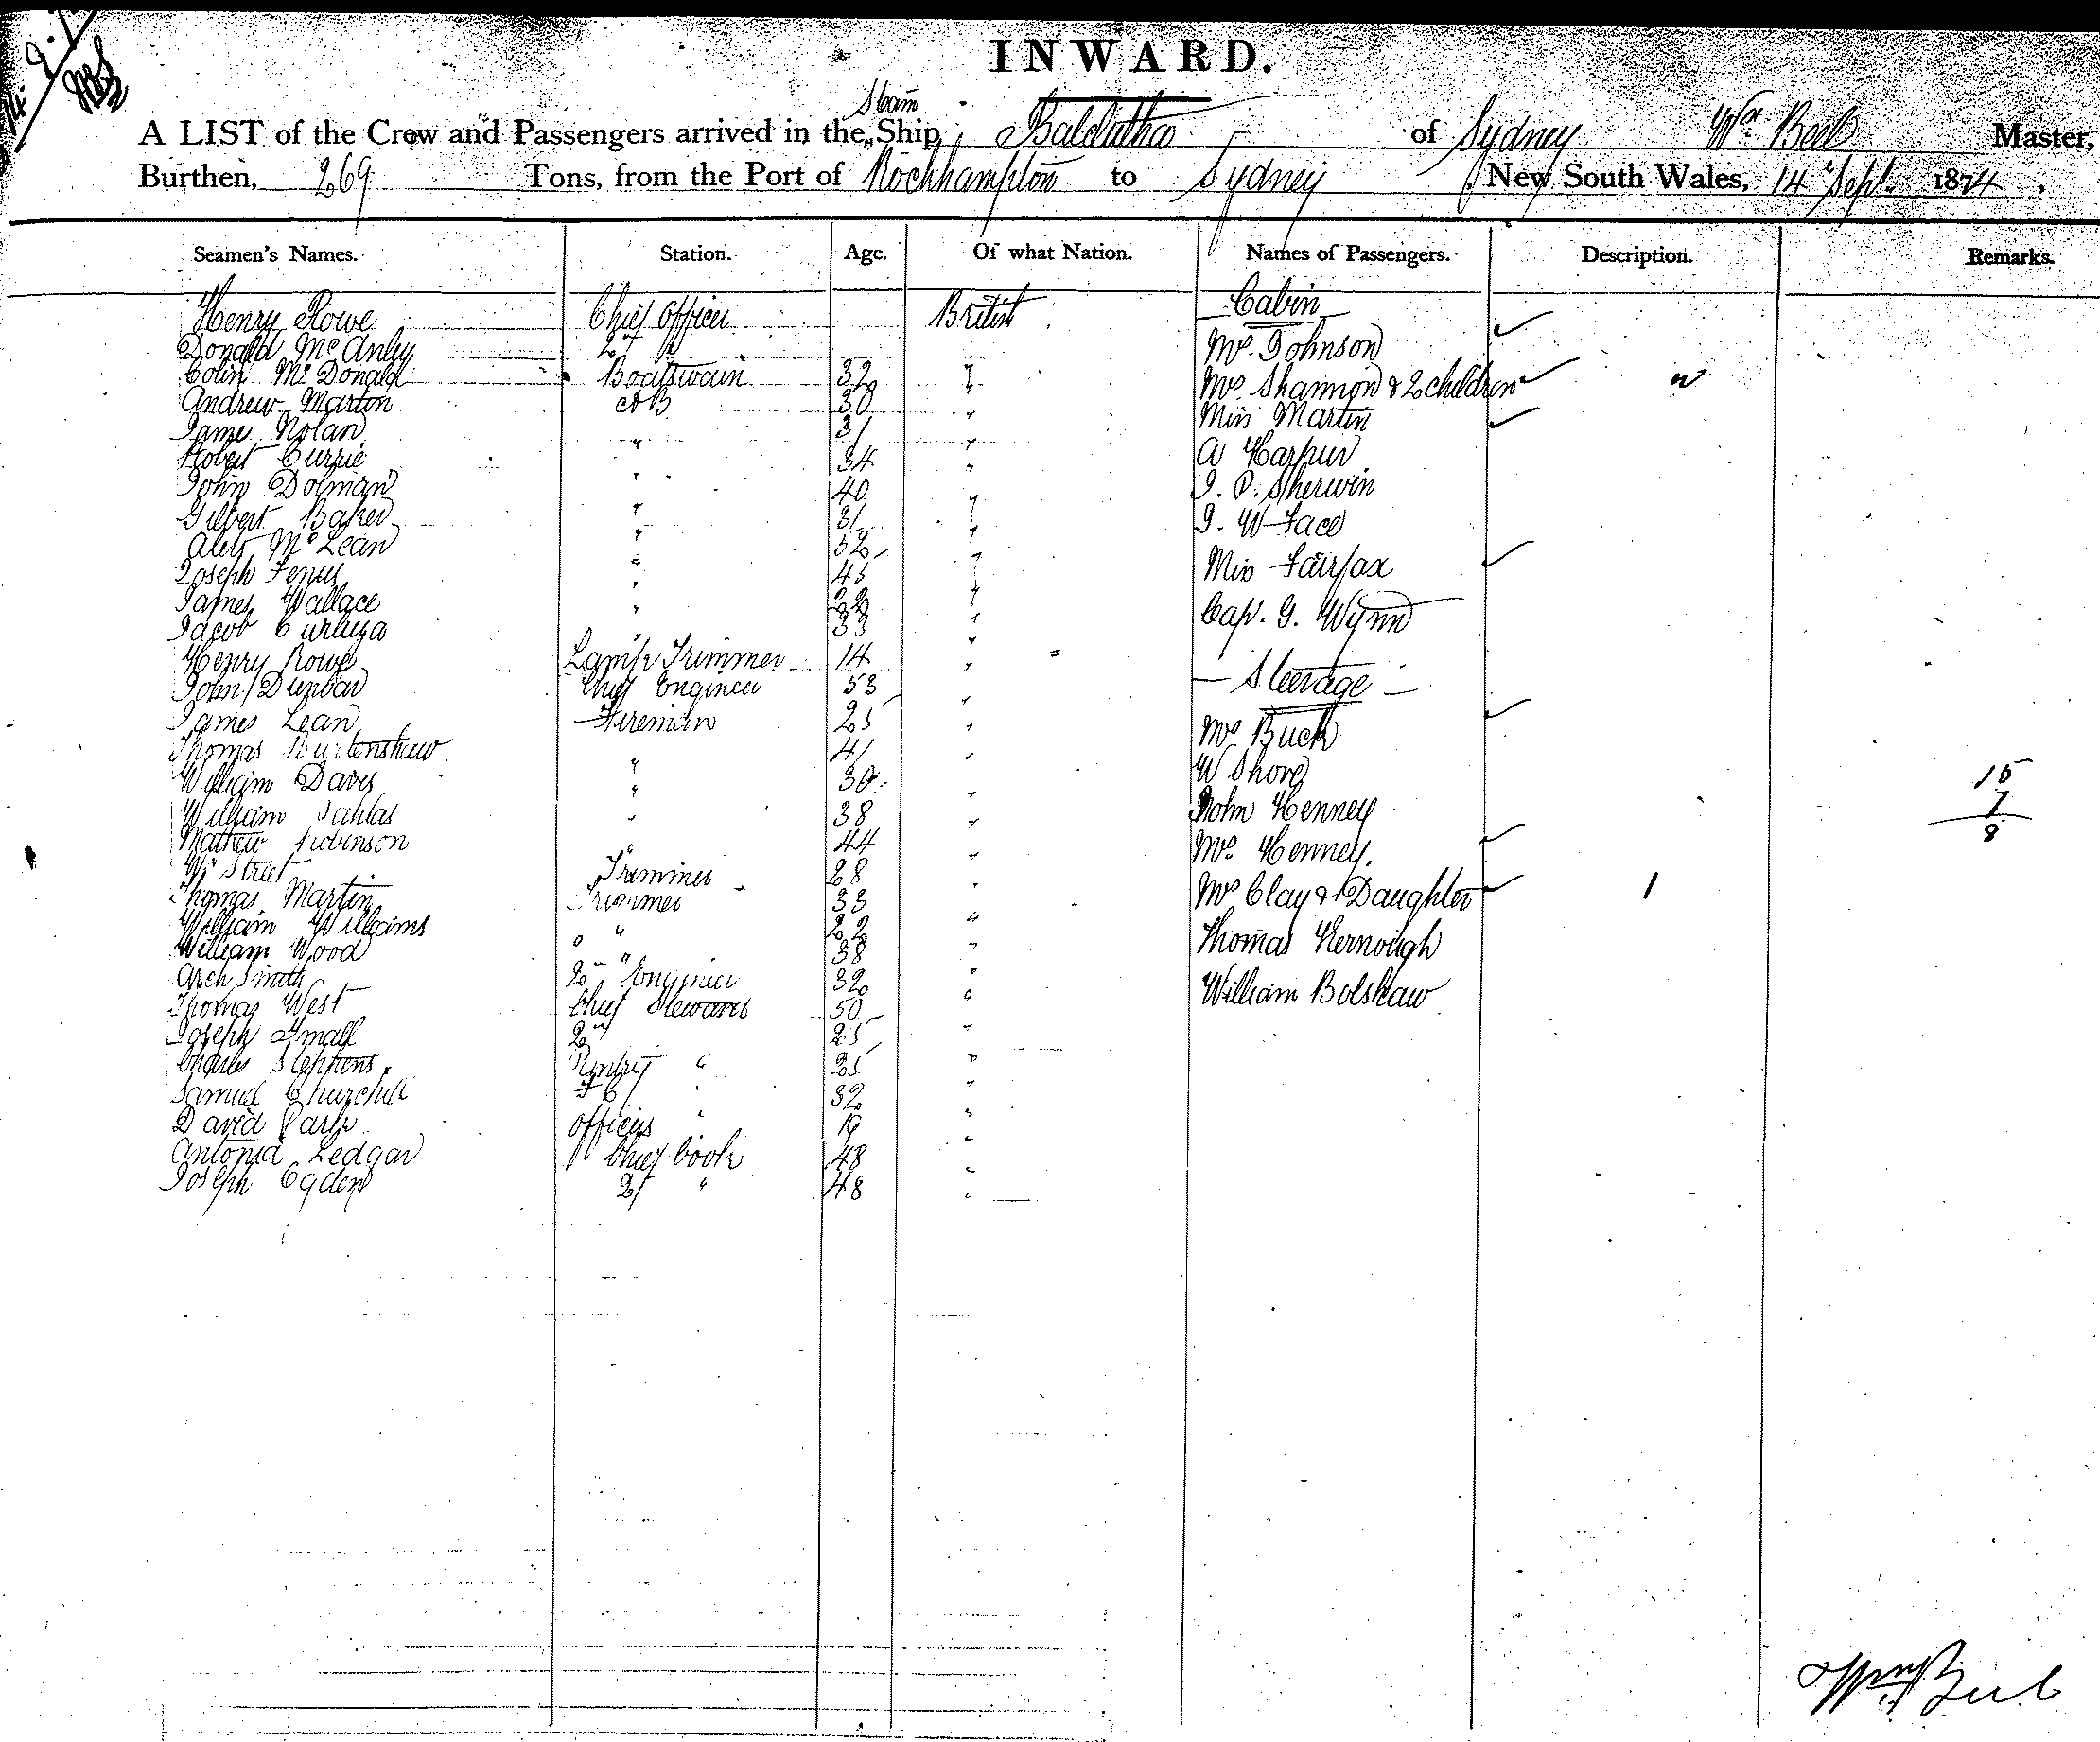 INWARD.
A LIST of the Crew and Passengers arrived in the Steam Ship Balclutha of Sydney Wm Beel Master,
Burthen, 269 Tons, from the Port of Rockhampton to Sydney, New South Wales, 14 Sept. 1874
Seamen's Names. Station. Age. Of what Nation. Names of Passengers. Description. Remarks.
Henry Rowe Chief Officer British Cabin
Donald McAnley 2 Mrs. Johnson
Colin McDonald Boatswain 32 " Mrs. Shannon & 2 children
Andrew Marton AB 30 " Miss Martin
Jame Nolan " 31 " A Harpur
Robert Currie " 34 " J. P. Sherwin
John Dolman " 40 " J. W Face
Gilbert Baker " 31 "
Alex McLean " 52 " Miss Fairfax
Joseph " 45 "
James Wallace " " Cap. G. Wynn
Jacob " 33 "
Henry Rowe Lamp Trimmer 14 " Steerage
John Dunbar Chief Engineer 53 "
James Lean Fireman 25 " Mrs Buck
Thomas Burtenshaw " 41 " W Shove
William Davis " 30 " John Henney
William " 38 "
Mathew Robinson " 44 " Mrs. Henney.
Wm Street Trimmer 28 " Mrs Clay & Daughter 1
Thomas Martin Trimmer 33 "
William Williams " 22 " Thomas Kernough
William Wood " 38 "
Arch Smith 2nd Engineer 32 " William Bolshaw
Thomas West Chief Steward 50 "
Joseph Small 2nd 25 "
Charles Stephens Pantry " 25 "
Samuel Churchill F C " 32 "
David Park Officers " 19 "
Antonia Ledgar Chief Cook 48 "
Joseph Ogden 2/ " 48 "
15
7
8
Wm Beel